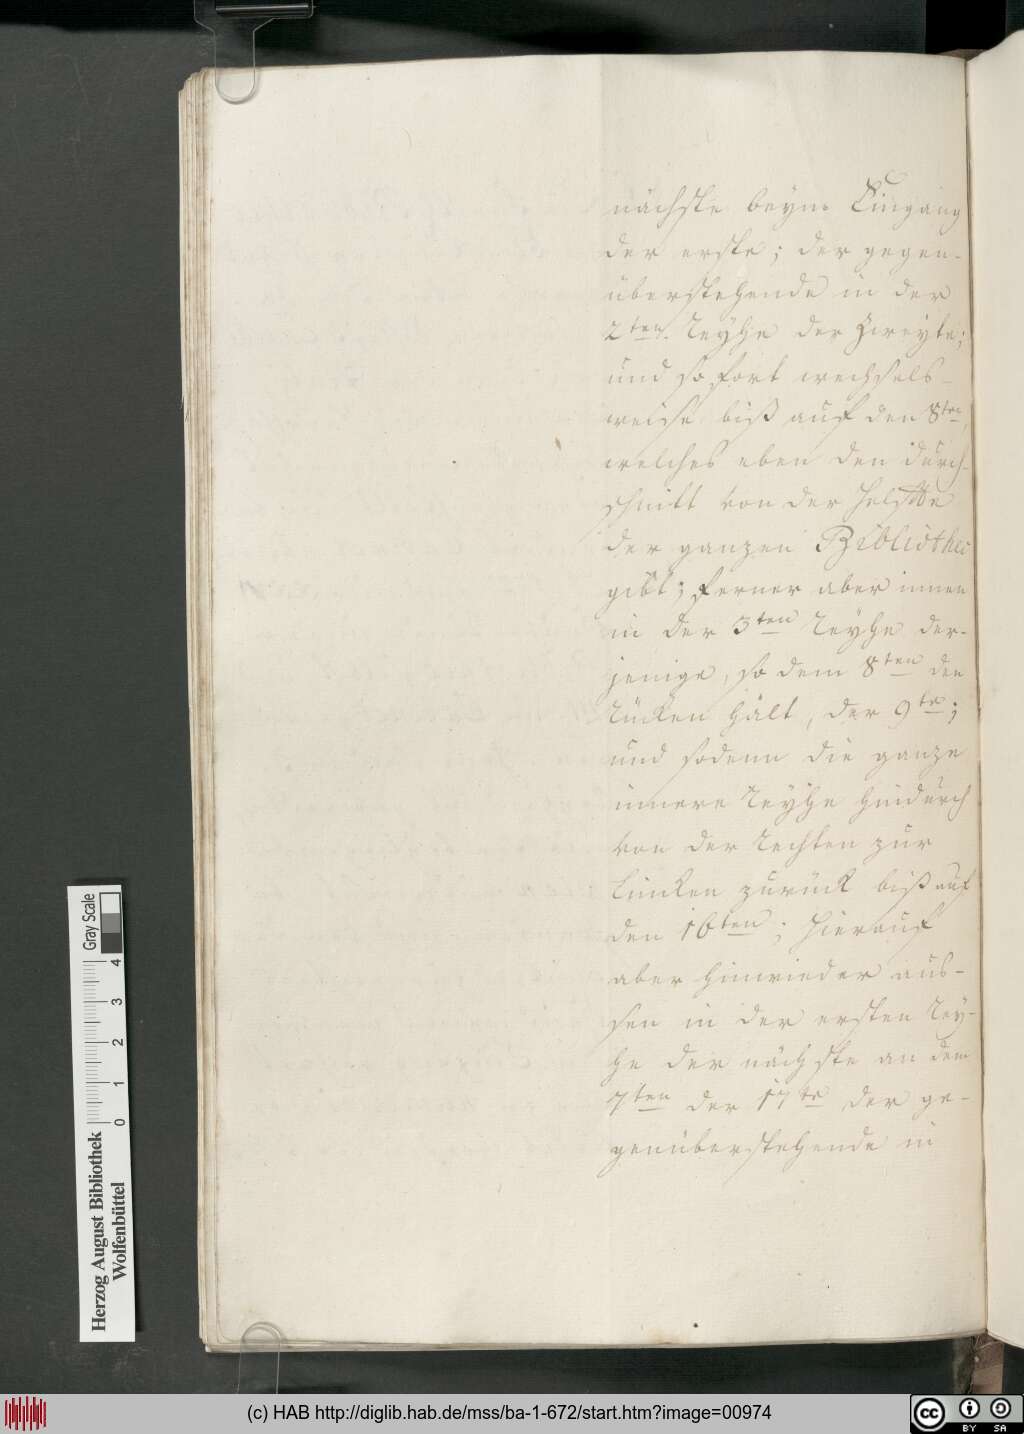 nächste beym Eingang
der erste; der gegen-
überstehende in der
2ten Reyhe der Zweyte;
und so fort wechsels-
weise biß auf den 8ten,
welches eben den durch-
schnitt von der Helffte
der ganzen Bibliothec
gibt; ferner aber innen
in der 3ten Reyhe der-
jenige, so dem 8ten den
Rücken hält, der 9te;
und sodenn die ganze
innere Reyhe hindurch
von der Rechten zur
Lincken zurück biß auf
den 16ten; hierauf
aber hinwieder aus-
sen in der ersten Rey-
he der nächste an dem
7ten der 17te der ge-
genüberstehende in
Gray Scale
0 1 2 3 4
Herzog August Bibliothek
Wolfenbüttel
(c) HAB http://diglib.hab.de/mss/ba-1-672/start.htm?image=00974
cc BY SA